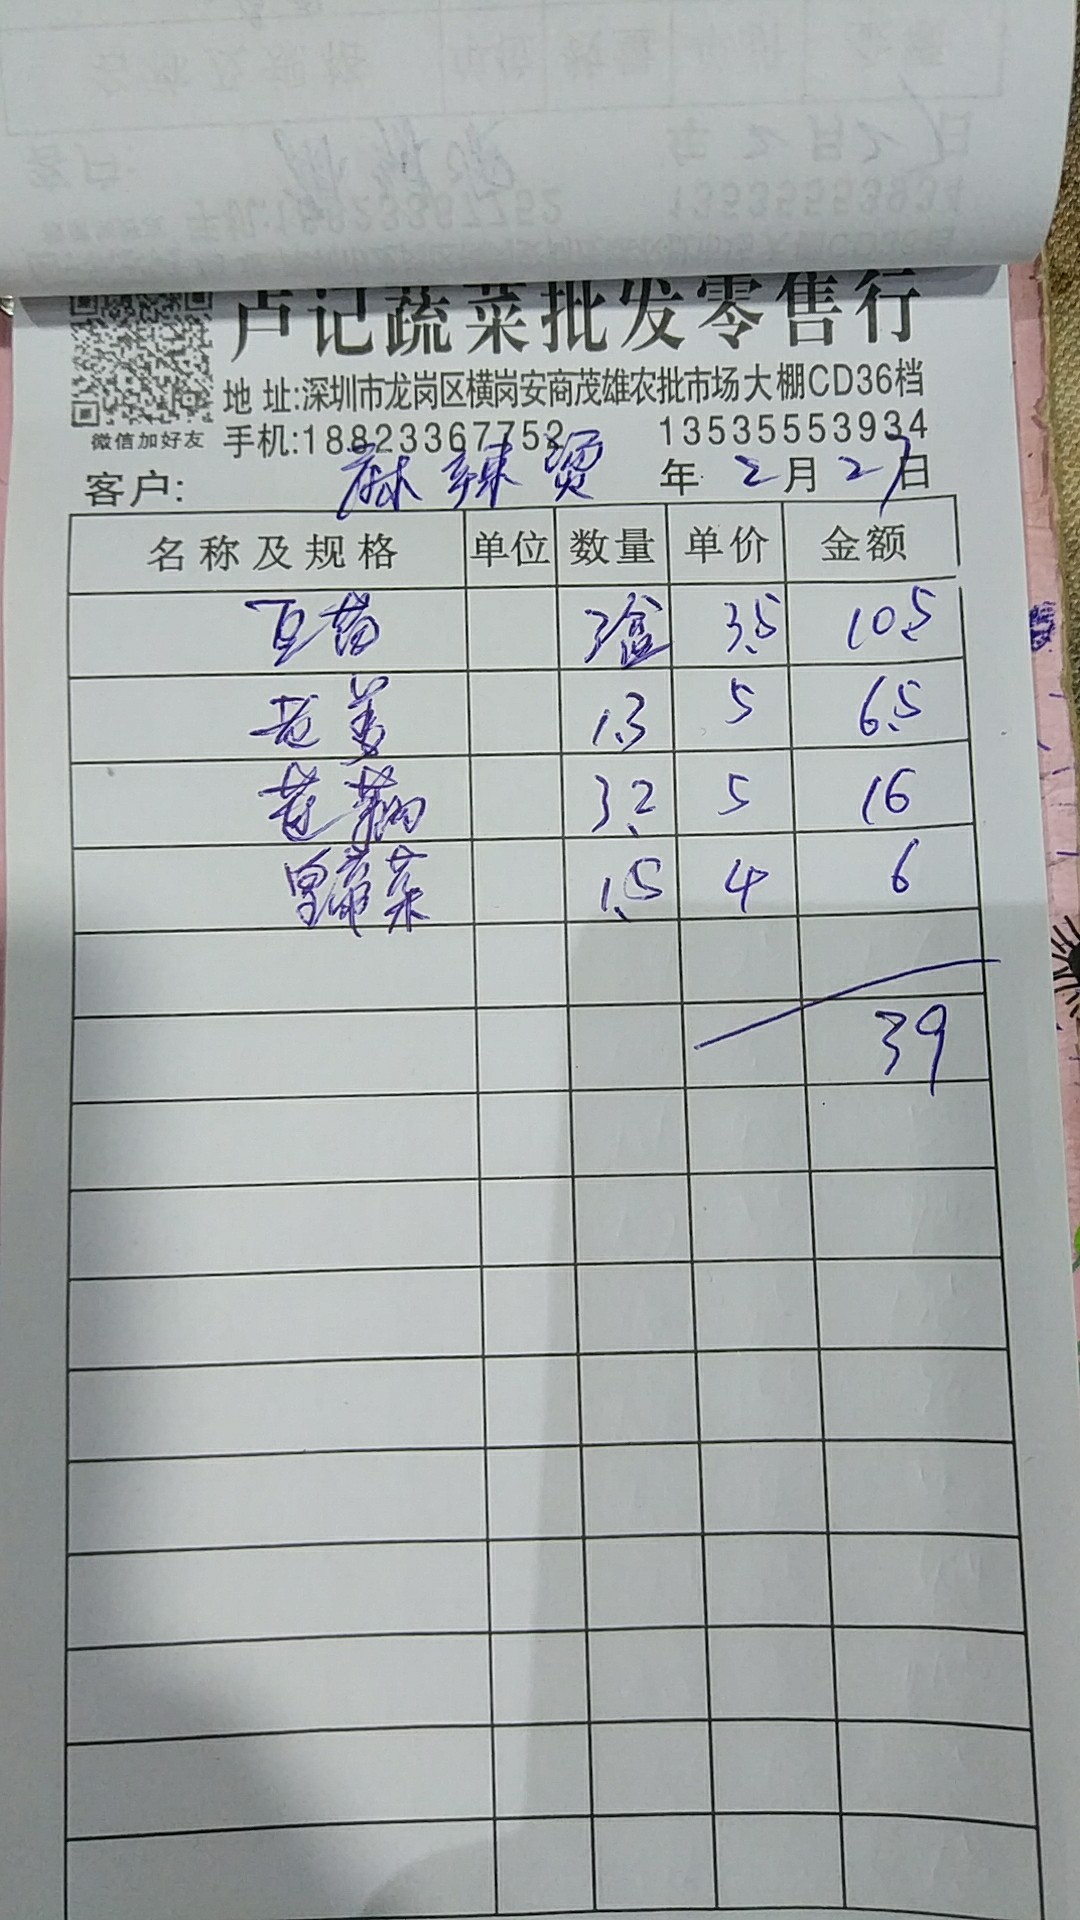 卢记蔬菜批发零售行
地 址:深圳市龙岗区横岗安商茂雄农批市场大棚CD36档
微信加好友 手机:18823367752 13535553934
客户: 麻辣烫 年 2月27日
名称及规格 单位 数量 单价 金额
豆苗 3盒 3.5 10.5
1.3 5 6.5
3.2 5 16
皇帝菜 1.5 4 6
39